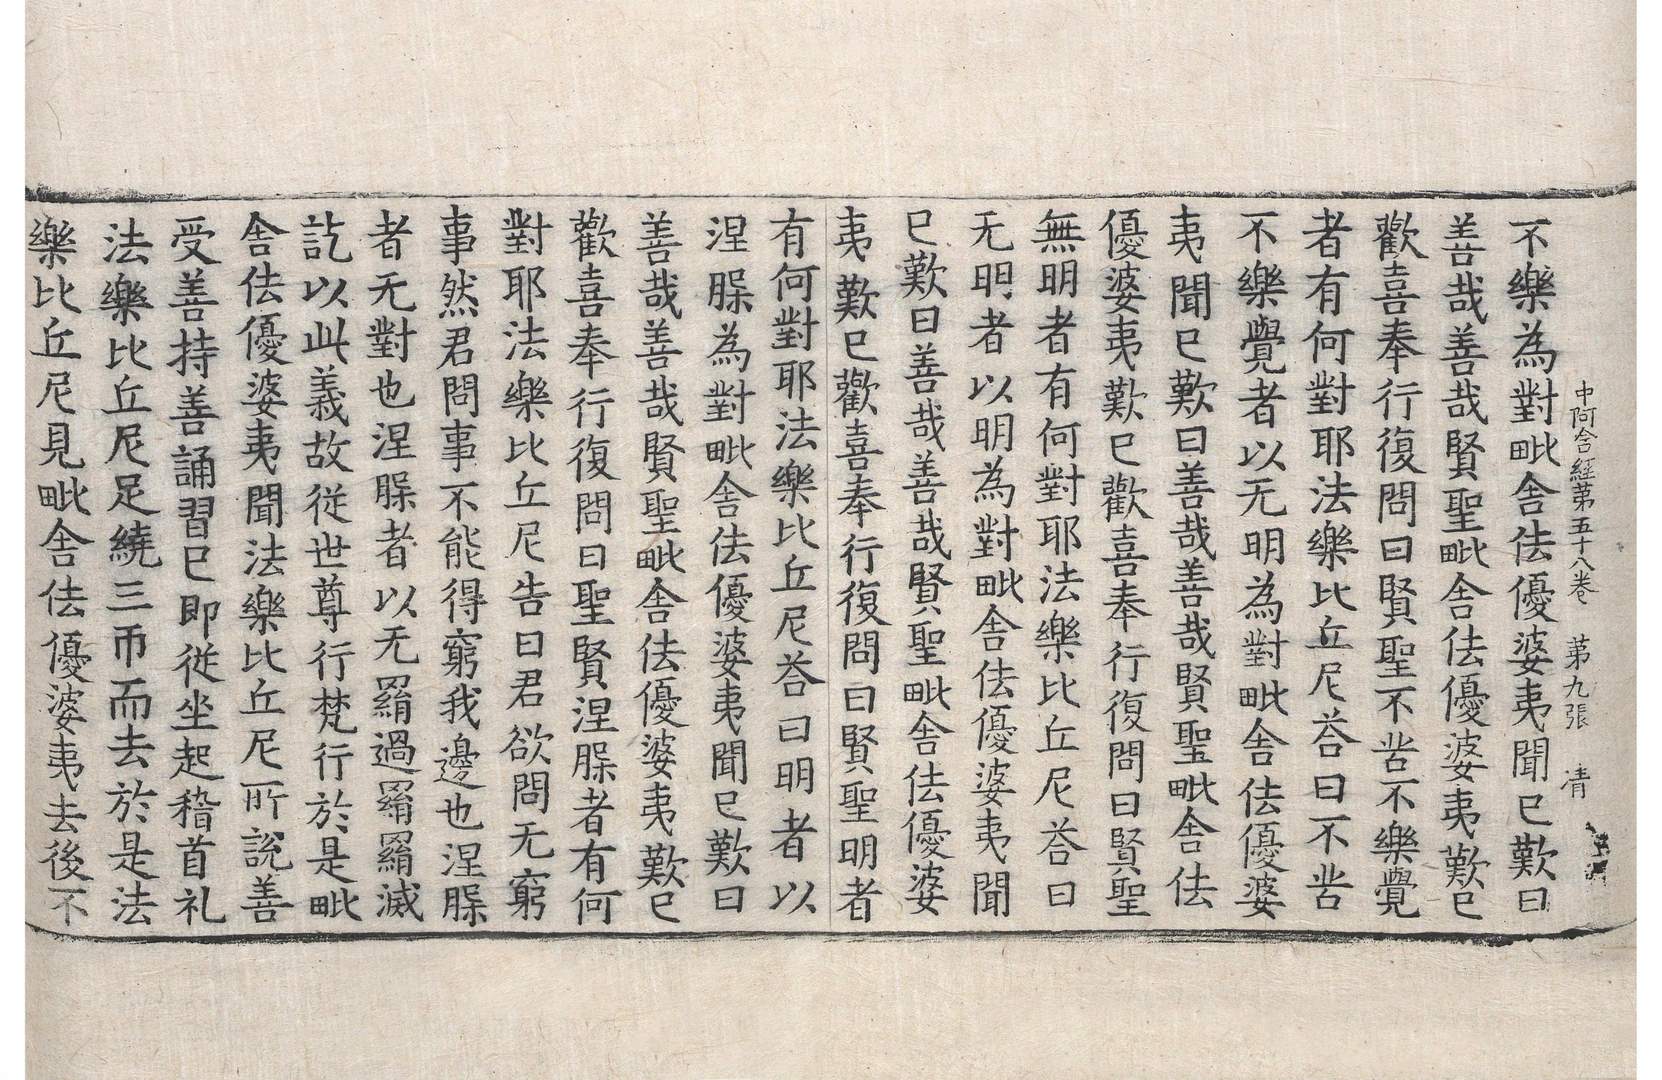 中阿含經第五十八卷 第九張 清
不樂為對毗舍佉優婆夷聞已歎曰
善哉善哉賢聖毗舍佉優婆夷歎已
歡喜奉行復問曰賢聖不苦不樂覺
者有何對耶法樂比丘尼荅曰不苦
不樂覺者以无明為對毗舍佉優婆
夷聞已歎曰善哉善哉賢聖毗舍佉
優婆夷歎已歡喜奉行復問曰賢聖
無明者有何對耶法樂比丘尼荅曰
无明者以明為對毗舍佉優婆夷聞
已歎曰善哉善哉賢聖毗舍佉優婆
夷歎已歡喜奉行復問曰賢聖明者
有何對耶法樂比丘尼荅曰明者以
涅槃為對毗舍佉優婆夷聞已歎曰
善哉善哉賢聖毗舍佉優婆夷歎已
歡喜奉行復問曰聖賢涅槃者有何
對耶法樂比丘尼告曰君欲問无窮
事然君問事不能得窮我邊也涅槃
者无對也涅槃者以无羂過羂羂滅
訖以此義故従世尊行梵行於是毗
舍佉優婆夷聞法樂比丘尼所說善
受善持善誦習已即從坐起稽首礼
法樂比丘尼足繞三帀而去於是法
樂比丘尼見毗舍佉優婆夷去後不